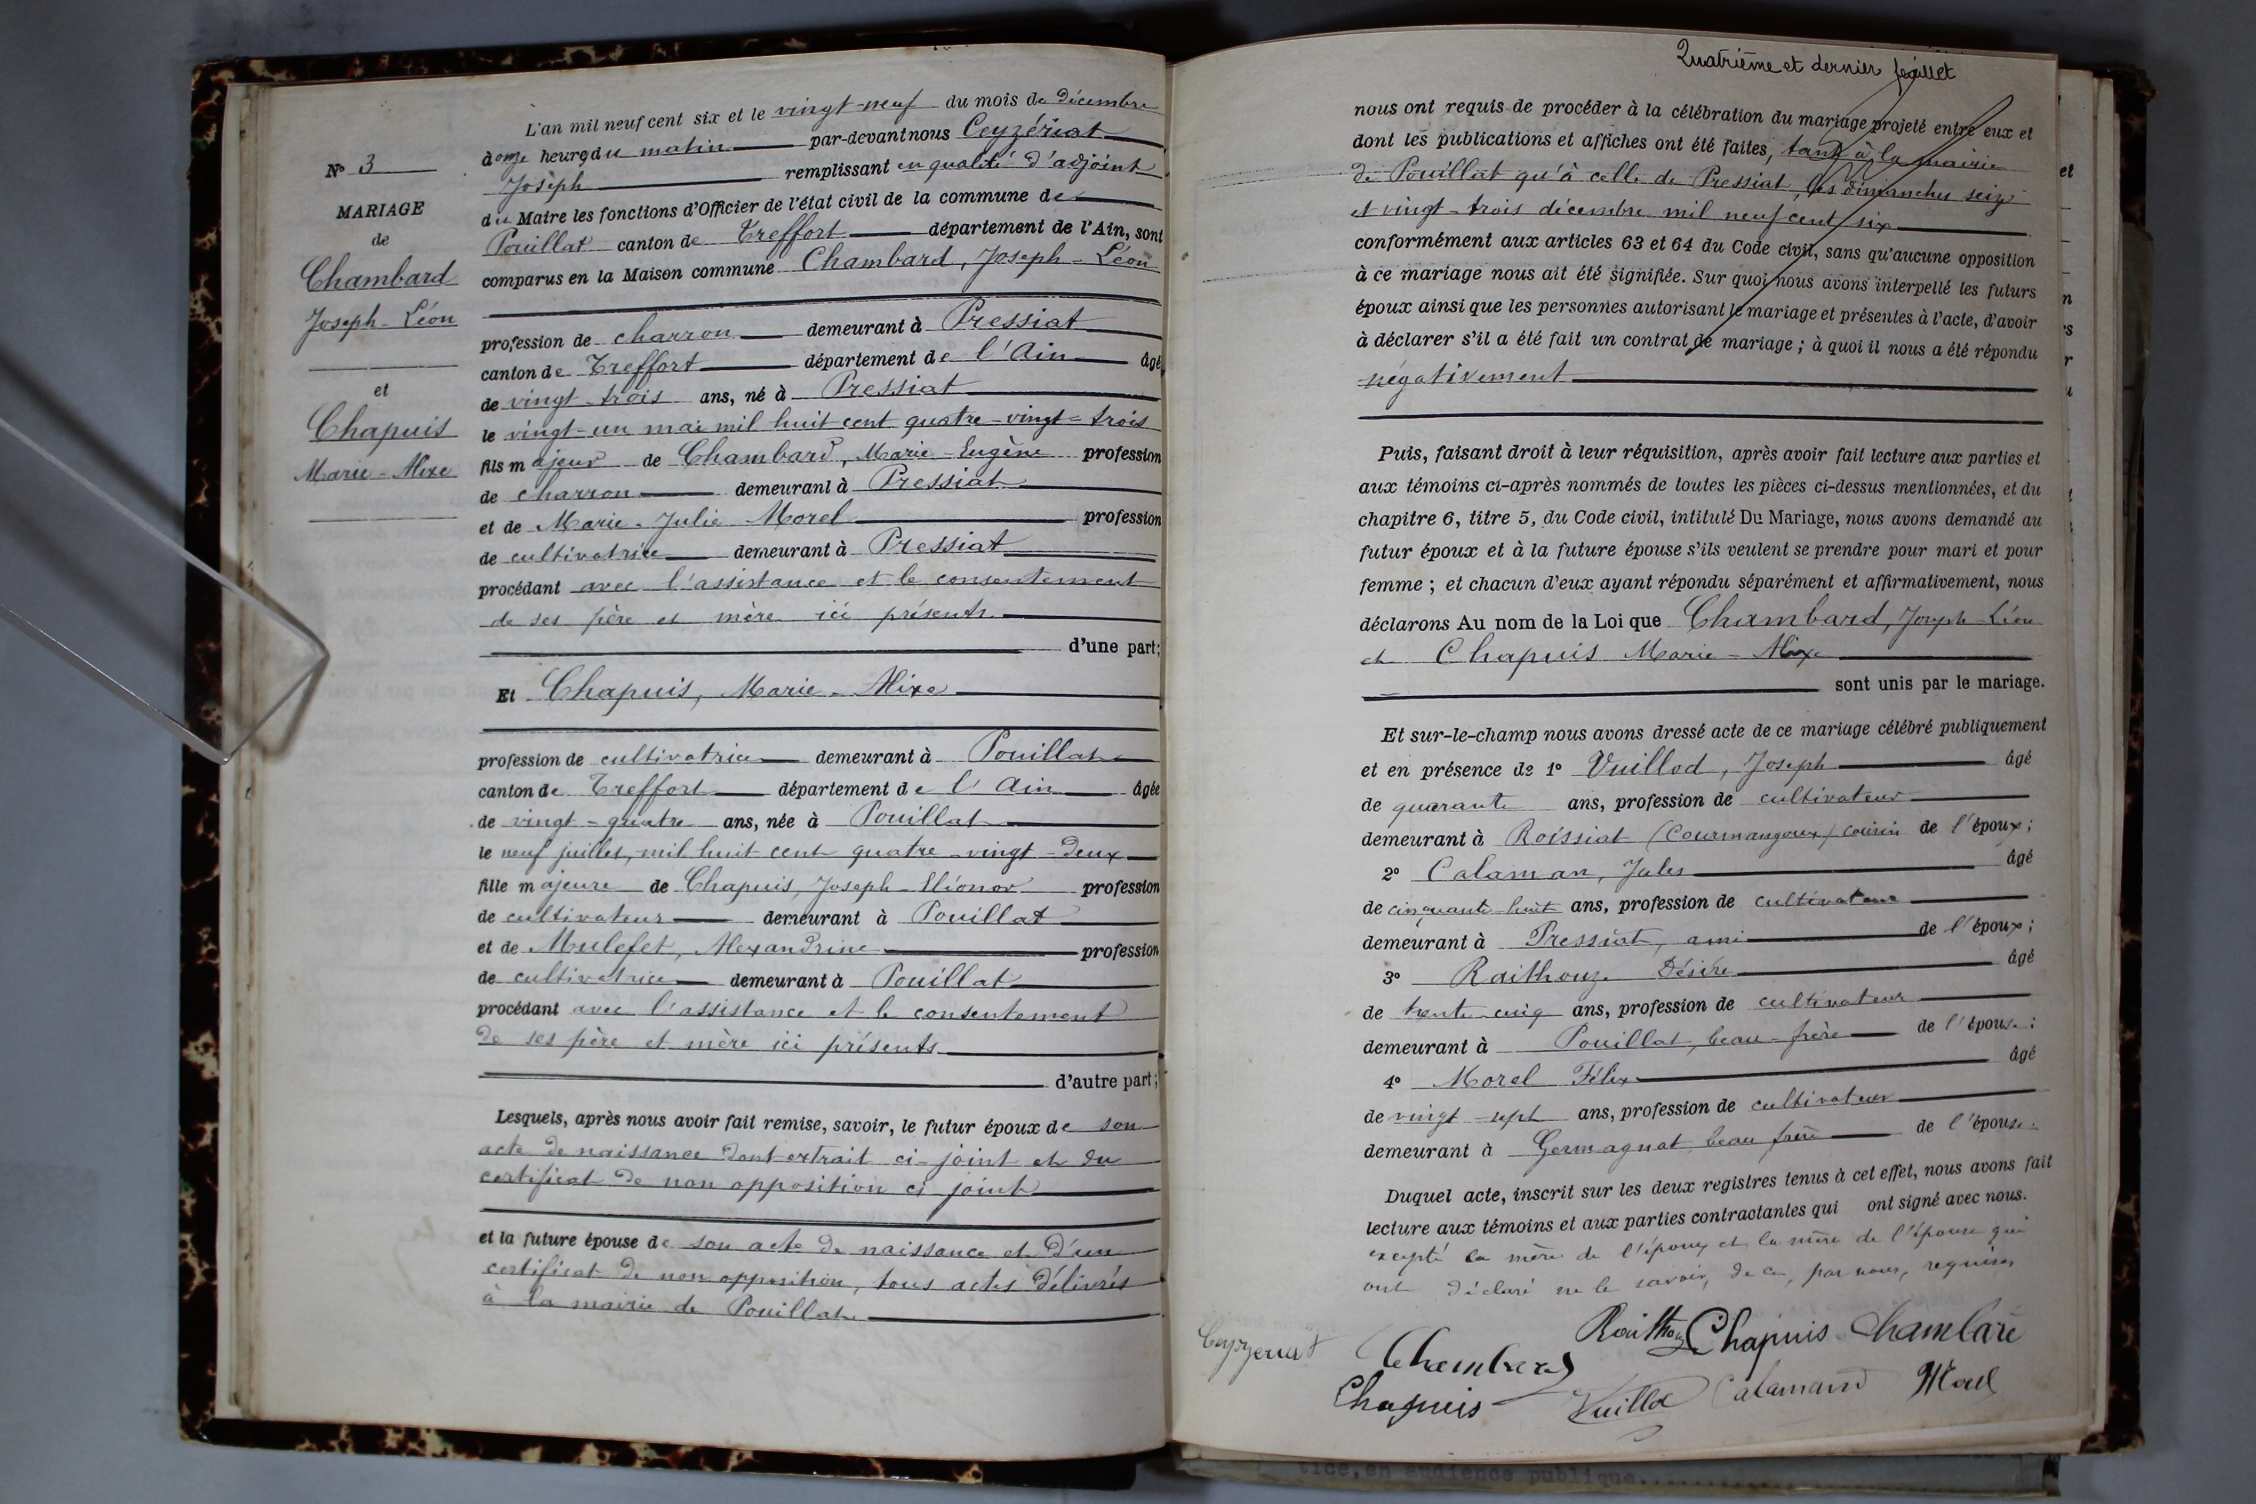 L'an mil neuf cent six et le vingt-neuf du mois de décembre
à onze heures du matin par-devant nous Ceyzériat
Joseph remplissant en qualité d'adjoint
du Maire les fonctions d'Officier de l'état civil de la commune de
Pouillat canton de Treffort département de l'Ain, sont
comparus en la Maison commune Chambard, Joseph-Léon
profession de charron demeurant à Pressiat
canton de Treffort département de l'Ain âgé
de vingt-trois ans, né à Pressiat
le vingt-un mai mil huit cent quatre-vingt-trois
fils majeur de Chambard, Marie-Eugène profession
de charron demeurant à Pressiat
et de Marie-Julie Morel profession
de cultivatrice demeurant à Pressiat
procédant avec l'assistance et le consentement
de ses père et mère ici présents
d'une part;
Et Chapuis, Marie-Alixe
profession de cultivatrice demeurant à Pouillat
canton de Treffort département de l'Ain âgée
de vingt-quatre ans, née à Pouillat
le neuf juillet, mil huit cent quatre-vingt-deux
fille majeure de Chapuis, Joseph-Eléonor profession
de cultivateur demeurant à Pouillat
et de Mulefet, Alexandrine profession
de cultivatrice demeurant à Pouillat
procédant avec l'assistance et le consentement
de ses père et mère ici présents
d'autre part;
Lesquels, après nous avoir fait remise, savoir, le futur époux de son
acte de naissance dont extrait ci-joint et du
certificat de non opposition ci-joint
et la future épouse de son acte de naissance et d'un
certificat de non opposition, tous actes délivrés
à la mairie de Pouillat
N° 3
MARIAGE
de
Chambard
Joseph-Léon
et
Chapuis
Marie-Alixe
Quatrième et dernier feuillet
nous ont requis de procéder à la célébration du mariage projeté entre eux et
dont les publications et affiches ont été faites, tant à la mairie
de Pouillat qu'à celle de Pressiat, les dimanches seize
et vingt-trois décembre mil neuf cent six
conformément aux articles 63 et 64 du Code civil, sans qu'aucune opposition
à ce mariage nous ait été signifiée. Sur quoi nous avons interpellé les futurs
époux ainsi que les personnes autorisant le mariage et présentes à l'acte, d'avoir
à déclarer s'il a été fait un contrat de mariage ; à quoi il nous a été répondu
négativement
Puis, faisant droit à leur réquisition, après avoir fait lecture aux parties et
aux témoins ci-après nommés de toutes les pièces ci-dessus mentionnées, et du
chapitre 6, titre 5, du Code civil, intitulé Du Mariage, nous avons demandé au
futur époux et à la future épouse s'ils veulent se prendre pour mari et pour
femme ; et chacun d'eux ayant répondu séparément et affirmativement, nous
déclarons Au nom de la Loi que Chambard, Joseph-Léon
et Chapuis Marie-Alixe
sont unis par le mariage.
Et sur-le-champ nous avons dressé acte de ce mariage célébré publiquement
et en présence de 1° Vuillod, Joseph âgé
de quarante ans, profession de cultivateur
demeurant à Roissiat (Courmangoux) cousin de l'époux;
2° Calaman, Jules âgé
de cinquante-huit ans, profession de cultivateur
demeurant à Pressiat, ami de l'époux;
3° Raithouz Désiré âgé
de trente-cinq ans, profession de cultivateur
demeurant à Pouillat, beau-frère de l'épouse;
4° Morel Félix âgé
de vingt-sept ans, profession de cultivateur
demeurant à Germagnat beau frère de l'épouse.
Duquel acte, inscrit sur les deux registres tenus à cet effet, nous avons fait
lecture aux témoins et aux parties contractantes qui ont signé avec nous.
excepté la mère de l'époux et la mère de l'épouse qui
ont déclaré ne le savoir, de ce, par nous, requises
Raithouz Chapuis Chambard
Ceyzeriat Chambard
Chapuis Vuillod Calamand Morel
tice, en audience publique